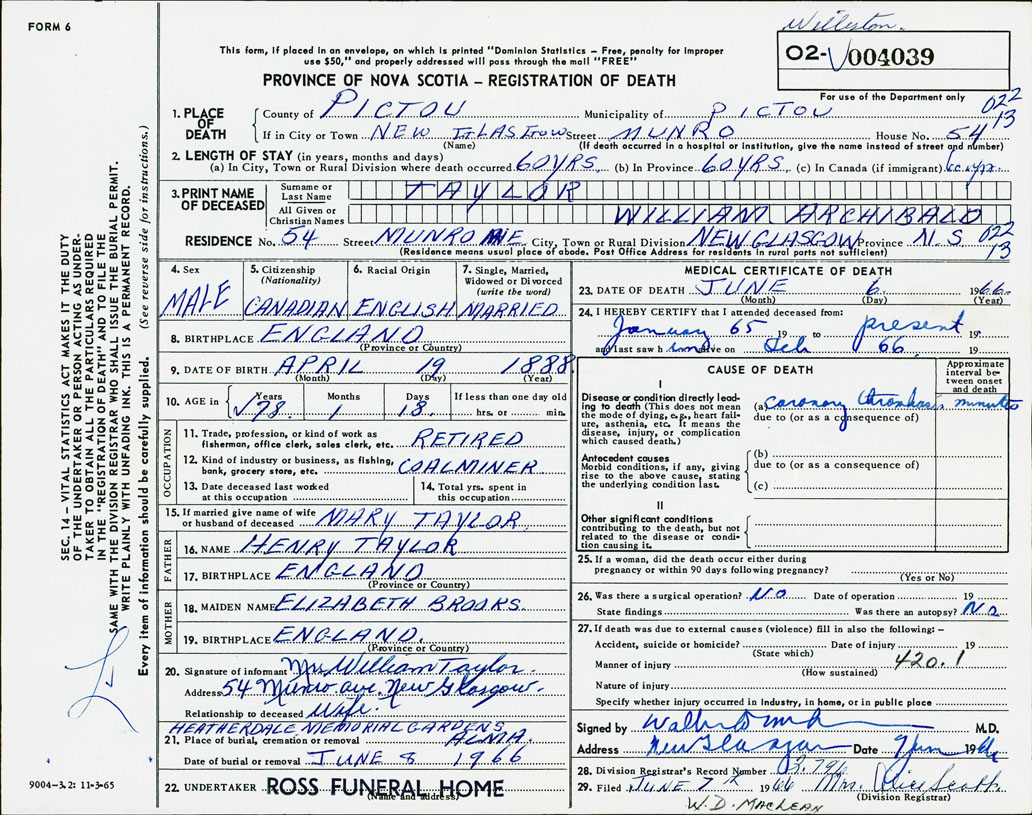 FORM 6
Williston.
O2-V004039
For use of the Department only
This form, if placed in an envelope, on which is printed "Dominion Statistics - Free, penalty for improper
use $50," and properly addressed will pass through the mail "FREE"
PROVINCE OF NOVA SCOTIA - REGISTRATION OF DEATH
022
13
1. PLACE OF DEATH
County of PICTOU Municipality of PICTOU
If in City or Town NEW GLASGOW Street MUNRO House No. 54
(Name) (If death occurred in a hospital or institution, give the name instead of street and number)
2. LENGTH OF STAY (in years, months and days)
(a) In City, Town or Rural Division where death occurred 60YRS. (b) In Province 60YRS. (c) In Canada (if immigrant) 60 yrs.
3. PRINT NAME OF DECEASED
Surname or Last Name TAYLOR
All Given or Christian Names WILLIAM ARCHIBALD
RESIDENCE No. 54 Street MUNRO AVE City, Town or Rural Division NEW GLASGOW Province N.S
022
13
(Residence means usual place of abode. Post Office Address for residents in rural parts not sufficient)
4. Sex MALE
5. Citizenship (Nationality) CANADIAN
6. Racial Origin ENGLISH
7. Single, Married, Widowed or Divorced (write the word) MARRIED
8. BIRTHPLACE ENGLAND
(Province or Country)
9. DATE OF BIRTH APRIL 19 1888
(Month) (Day) (Year)
10. AGE in Years 78 Months 1 Days 18 If less than one day old hrs. or min.
OCCUPATION
11. Trade, profession, or kind of work as fisherman, office clerk, sales clerk, etc. RETIRED
12. Kind of industry or business, as fishing, bank, grocery store, etc. COALMINER
13. Date deceased last worked at this occupation
14. Total yrs. spent in this occupation
15. If married give name of wife or husband of deceased MARY TAYLOR
FATHER
16. NAME HENRY TAYLOR
17. BIRTHPLACE ENGLAND
(Province or Country)
MOTHER
18. MAIDEN NAME ELIZABETH BROOKS.
19. BIRTHPLACE ENGLAND.
(Province or Country)
20. Signature of informant Mrs William Taylor.
Address 54 Munro ave. New Glasgow.
Relationship to deceased Wife.
HEATHERDALE MEMORIAL GARDENS
21. Place of burial, cremation or removal ALMA
Date of burial or removal JUNE 8 1966
22. UNDERTAKER ROSS FUNERAL HOME
(Name and address)
MEDICAL CERTIFICATE OF DEATH
23. DATE OF DEATH JUNE 6 1966.
(Month) (Day) (Year)
24. I HEREBY CERTIFY that I attended deceased from:
January 65 19 to present 19
and last saw him alive on Feb 66 19
CAUSE OF DEATH
Approximate interval between onset and death
I
Disease or condition directly leading to death (This does not mean the mode of dying, e.g., heart failure, asthenia, etc. It means the disease, injury, or complication which caused death.)
(a) coronary thrombosis minutes
due to (or as a consequence of)
Antecedent causes
Morbid conditions, if any, giving rise to the above cause, stating the underlying condition last.
(b)
due to (or as a consequence of)
(c)
II
Other significant conditions
contributing to the death, but not related to the disease or condition causing it.
25. If a woman, did the death occur either during pregnancy or within 90 days following pregnancy?
(Yes or No)
26. Was there a surgical operation? No Date of operation 19
State findings Was there an autopsy? No
27. If death was due to external causes (violence) fill in also the following: -
Accident, suicide or homicide? Date of injury 19
(State which)
Manner of injury 420.1
(How sustained)
Nature of injury
Specify whether injury occurred in industry, in home, or in public place
Signed by M.D.
Address New Glasgow Date 9 June 1966
28. Division Registrar's Record Number
29. Filed JUNE 7 1966 Mrs. Alice Scott
(Division Registrar)
W.D. MacLean
SEC. 14 - VITAL STATISTICS ACT MAKES IT THE DUTY
OF THE UNDERTAKER OR PERSON ACTING AS UNDER-
TAKER TO OBTAIN ALL THE PARTICULARS REQUIRED
IN THE "REGISTRATION OF DEATH" AND TO FILE THE
SAME WITH THE DIVISION REGISTRAR WHO SHALL ISSUE THE BURIAL PERMIT.
WRITE PLAINLY WITH UNFADING INK. THIS IS A PERMANENT RECORD.
Every item of information should be carefully supplied. (See reverse side for instructions.)
9004-3.2: 11-3-65